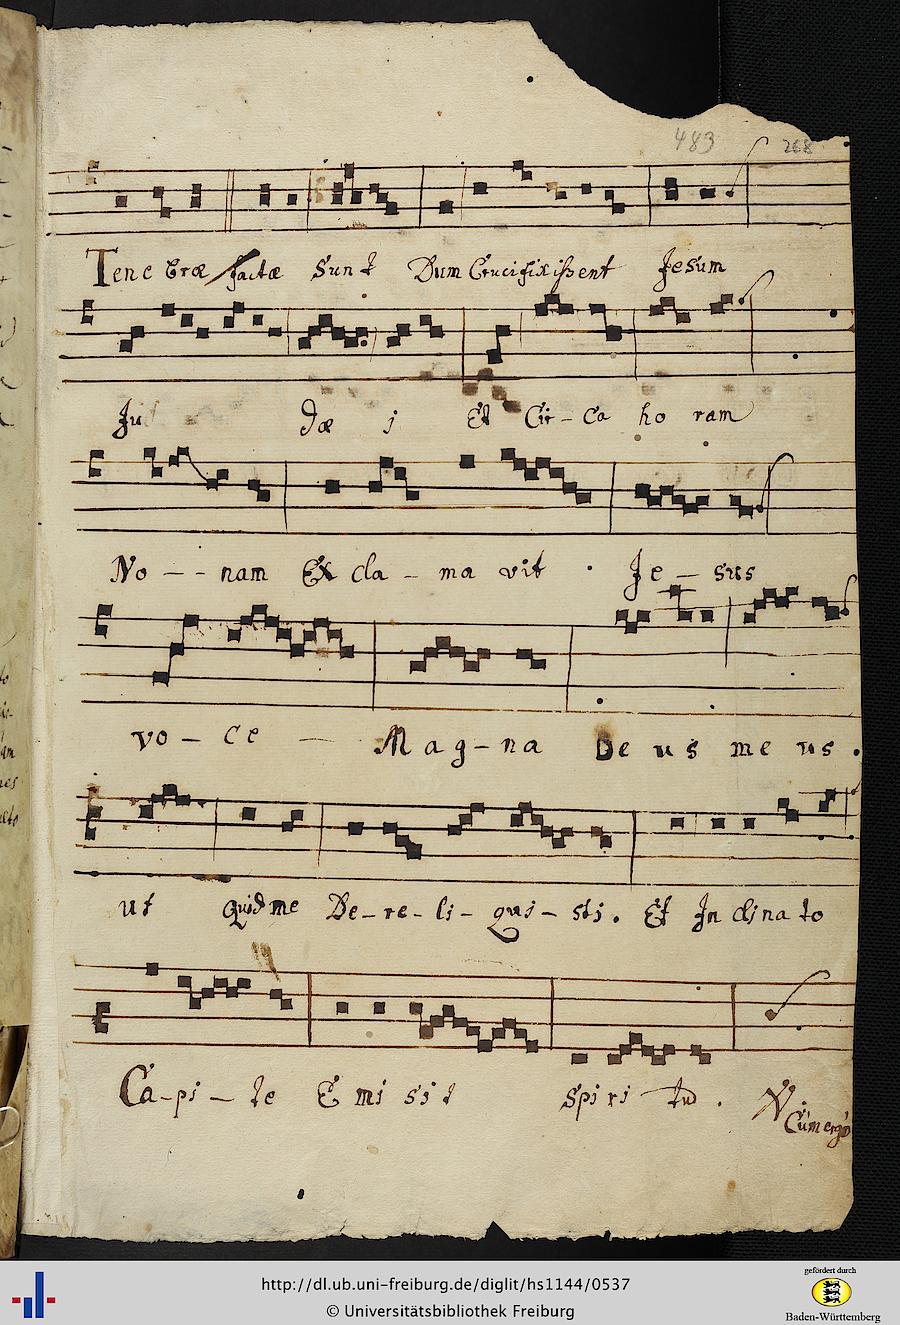 483 268
Tene bræ factæ Sunt Dum Crucifixißent Jesum
Ju dæ i Et Cir-ca ho ram
No -- nam Ex cla - ma vit . Je - sus
vo - ce - Mag-na Deus meus.
ut Quid me De-re-li-qui-sti. Et Inclina to
Ca-pi-te Emisit Spiri tu.
Cum ergo
http://dl.ub.uni-freiburg.de/diglit/hs1144/0537
© Universitätsbibliothek Freiburg
gefördert durch
Baden-Württemberg